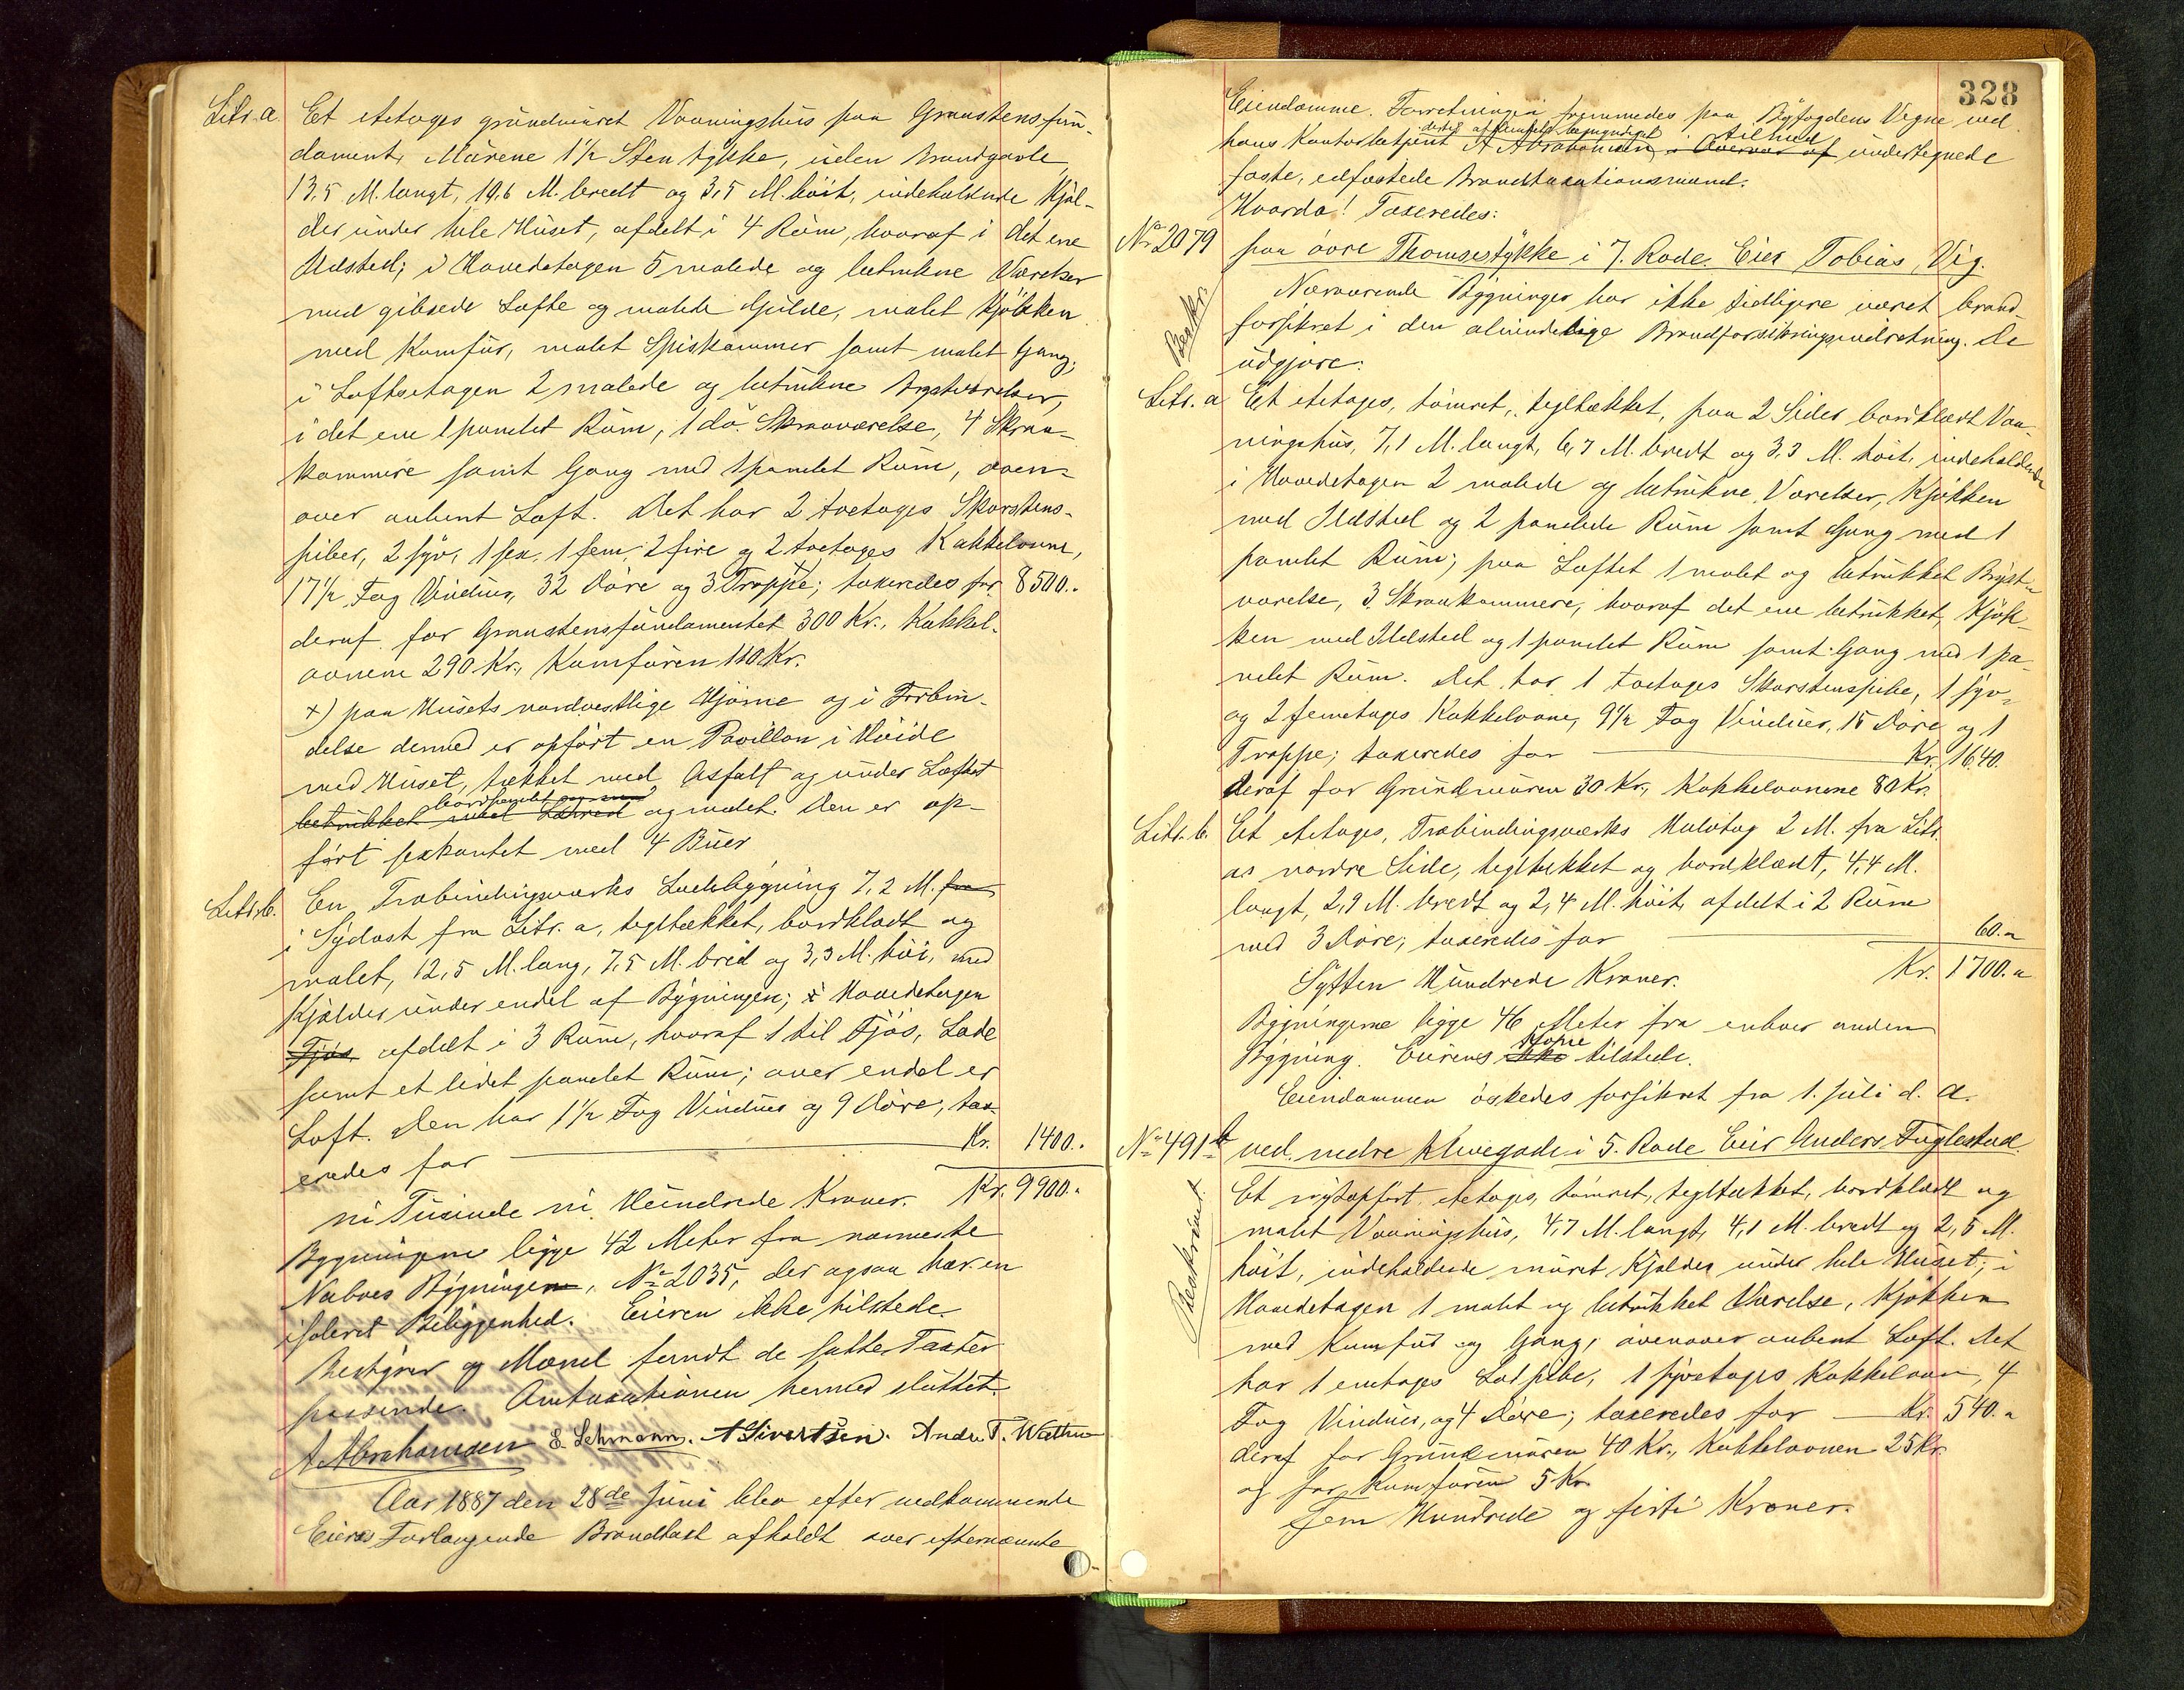 Litr. a. Et etetages grundmuret Vaaningshus paa Graastensfun-
dament, Murene 1 1/2 Sten tykke, uden Brandgavle,
13,5 M. langt, 10,6 M. bredt og 3,5 M. höit, indeholdende Kjæl-
der under hele Huset, afdelt i 4 Rum, hvoraf i det ene
Ildsted; i Hovedetagen 5 malede og betrukne Værelser
med gibsede Lofte og malede Gulve, malet Kjökken
med Komfur, malet Spiskammer samt malet Gang;
i Loftsetagen 2 malede og betrukne Brystværelser,
i det ene 1 panelet Rum, 1 do. Skraaværelse, 4 Skraa-
kammere samt Gang med 1 panelet Rum, oven-
over aabent Loft. Det har 2 toetages Skorstens-
piber, 2 syv, 1 sex, 1 fem, 2 fire og 2 toetages Kakkelovne,
17 1/2 Fag Vinduer, 32 Döre og 3 Trapper +; taxeredes for 8500..
deraf for Graastensfundamentet 300 Kr., Kakkel-
ovnene 290 Kr., Komfuren 110 Kr.
+) paa Husets nordvestlige Hjörne og i Forbin-
delse dermed er opfört en Pavillon i Höide
med Huset, tækket med Asfalt og under Loftet
betrukket med Lærred bordpanelet og malet. Den er op-
fört sexkantet med 4 Buer
Litr. b. En Træbindingsværks Ladebygning 7,2 M. fra
i Sydost fra Litr. a, tegltækket, bordklædt og
malet, 12,5 M. lang, 7,5 M. bred og 3,3 M. höi, med
Kjælder under endel af Bygningen; i Hovedetagen
Fjös afdelt i 3 Rum, hvoraf 1 til Fjös, Lade
samt et lidet panelet Rum; over endel er
Loft. Den har 1 1/2 Fag Vinduer og 9 Döre, tax-
eredes for Kr. 1400..
ni Tusinde ni Hundrede Kroner. Kr. 9900..
Bygningerne ligge 42 Meter fra nærmeste
Naboes Bygningen, No 2035, der ogsaa har en
isoleret Beliggenhed. Eieren ikke tilstede.
Bestyrer og Mænd fandt de satte Taxter
passende. Omtaxationen hermed sluttet
A Abrahamsen E. Lehmann. A Sivertsen. Andr. T. Wathne
Aar 1887 den 28de Juni blev efter vedkommende
Eieres Forlangende Brandtaxt afholdt over efternævnte
328
Eiendomme. Forretningen fremmedes paa Byfogdens Vegne ved
hans Kontorbetjent dertil af bemyndiget A Abrahamsen, i Overvær af tilhed undertegnede
faste, edfæstede Brandtaxationsmænd.
Hvorda! Taxeredes:
No 2079 paa övre Thomsestykke i 7. Rode. Eier Tobias Vig.
Beskr.
Nærværende Bygninger har ikke tidligere været brand-
forsikret i den almindelige Brandforsikringsindretning. De
udgjöre:
Litr. a Et etetages, tömret, tegltækket, paa 2 Sider bordklædt Vaa-
ningshus, 7,1 M. langt, 6,7 M. bredt og 3,3 M. höit, indeholdende
i Hovedetagen 2 malede og betrukne Værelser, Kjökken
med Ildsted og 2 panelede Rum samt Gang med 1
panelet Rum; paa Loftet 1 malet og betrukket Bryst-
værelse, 3 Skraakammere, hvoraf det ene betrukket, Kjök-
ken med Ildsted og 1 panelet Rum samt Gang med 1 pa-
nelet Rum. Det har 1 toetages Skorstenspibe, 1 syv-
og 2 femetages Kakkelovne, 9 1/2 Fag Vinduer, 15 Döre og 1
Trappe; taxeredes for Kr. 1640.
deraf for Grundmuren 30 Kr., Kakkelovnene 80 Kr.
Litr. b. Et etetages, Træbindingsværks Halvtag 2 M. fra Litr.
as nordre Side, tegltækket og bordklædt, 4,4 M.
langt, 2,9 M. bredt og 2,4 M. höit, afdelt i 2 Rum
med 3 Döre; taxeredes for 60..
Sytten Hundrede Kroner. Kr. 1700..
Bygningerne ligge 46 Meter fra enhver anden
Bygning. Eierens ikke Kone tilstede.
Eiendommen öskedes forsikret fra 1. Juli d. A.
No 491 b ved nedre Klevegade i 5. Rode Eier Anders Fuglestad.
Beskrevet
Et nyt opfört, etetages, tömret, tegltækket, bordklædt og
malet Vaaningshus, 4,7 M. langt, 4,1 M. bredt og 2,5 M.
höit, indeholdende muret Kjælder under hele Huset; i
Hovedetagen 1 malet og betrukket Værelse, Kjökken
med Komfur og Gang, ovenover aabent Loft. Det
har 1 enetages Lodpibe, 1 syvetages Kakkelovn, 4
Fag Vinduer, og 4 Döre; taxeredes for Kr. 540..
deraf for Grundmuren 40 Kr., Kakkelovnen 25 Kr.
og for Komfuren 5 Kr.
Fem Hundrede og firti Kroner.